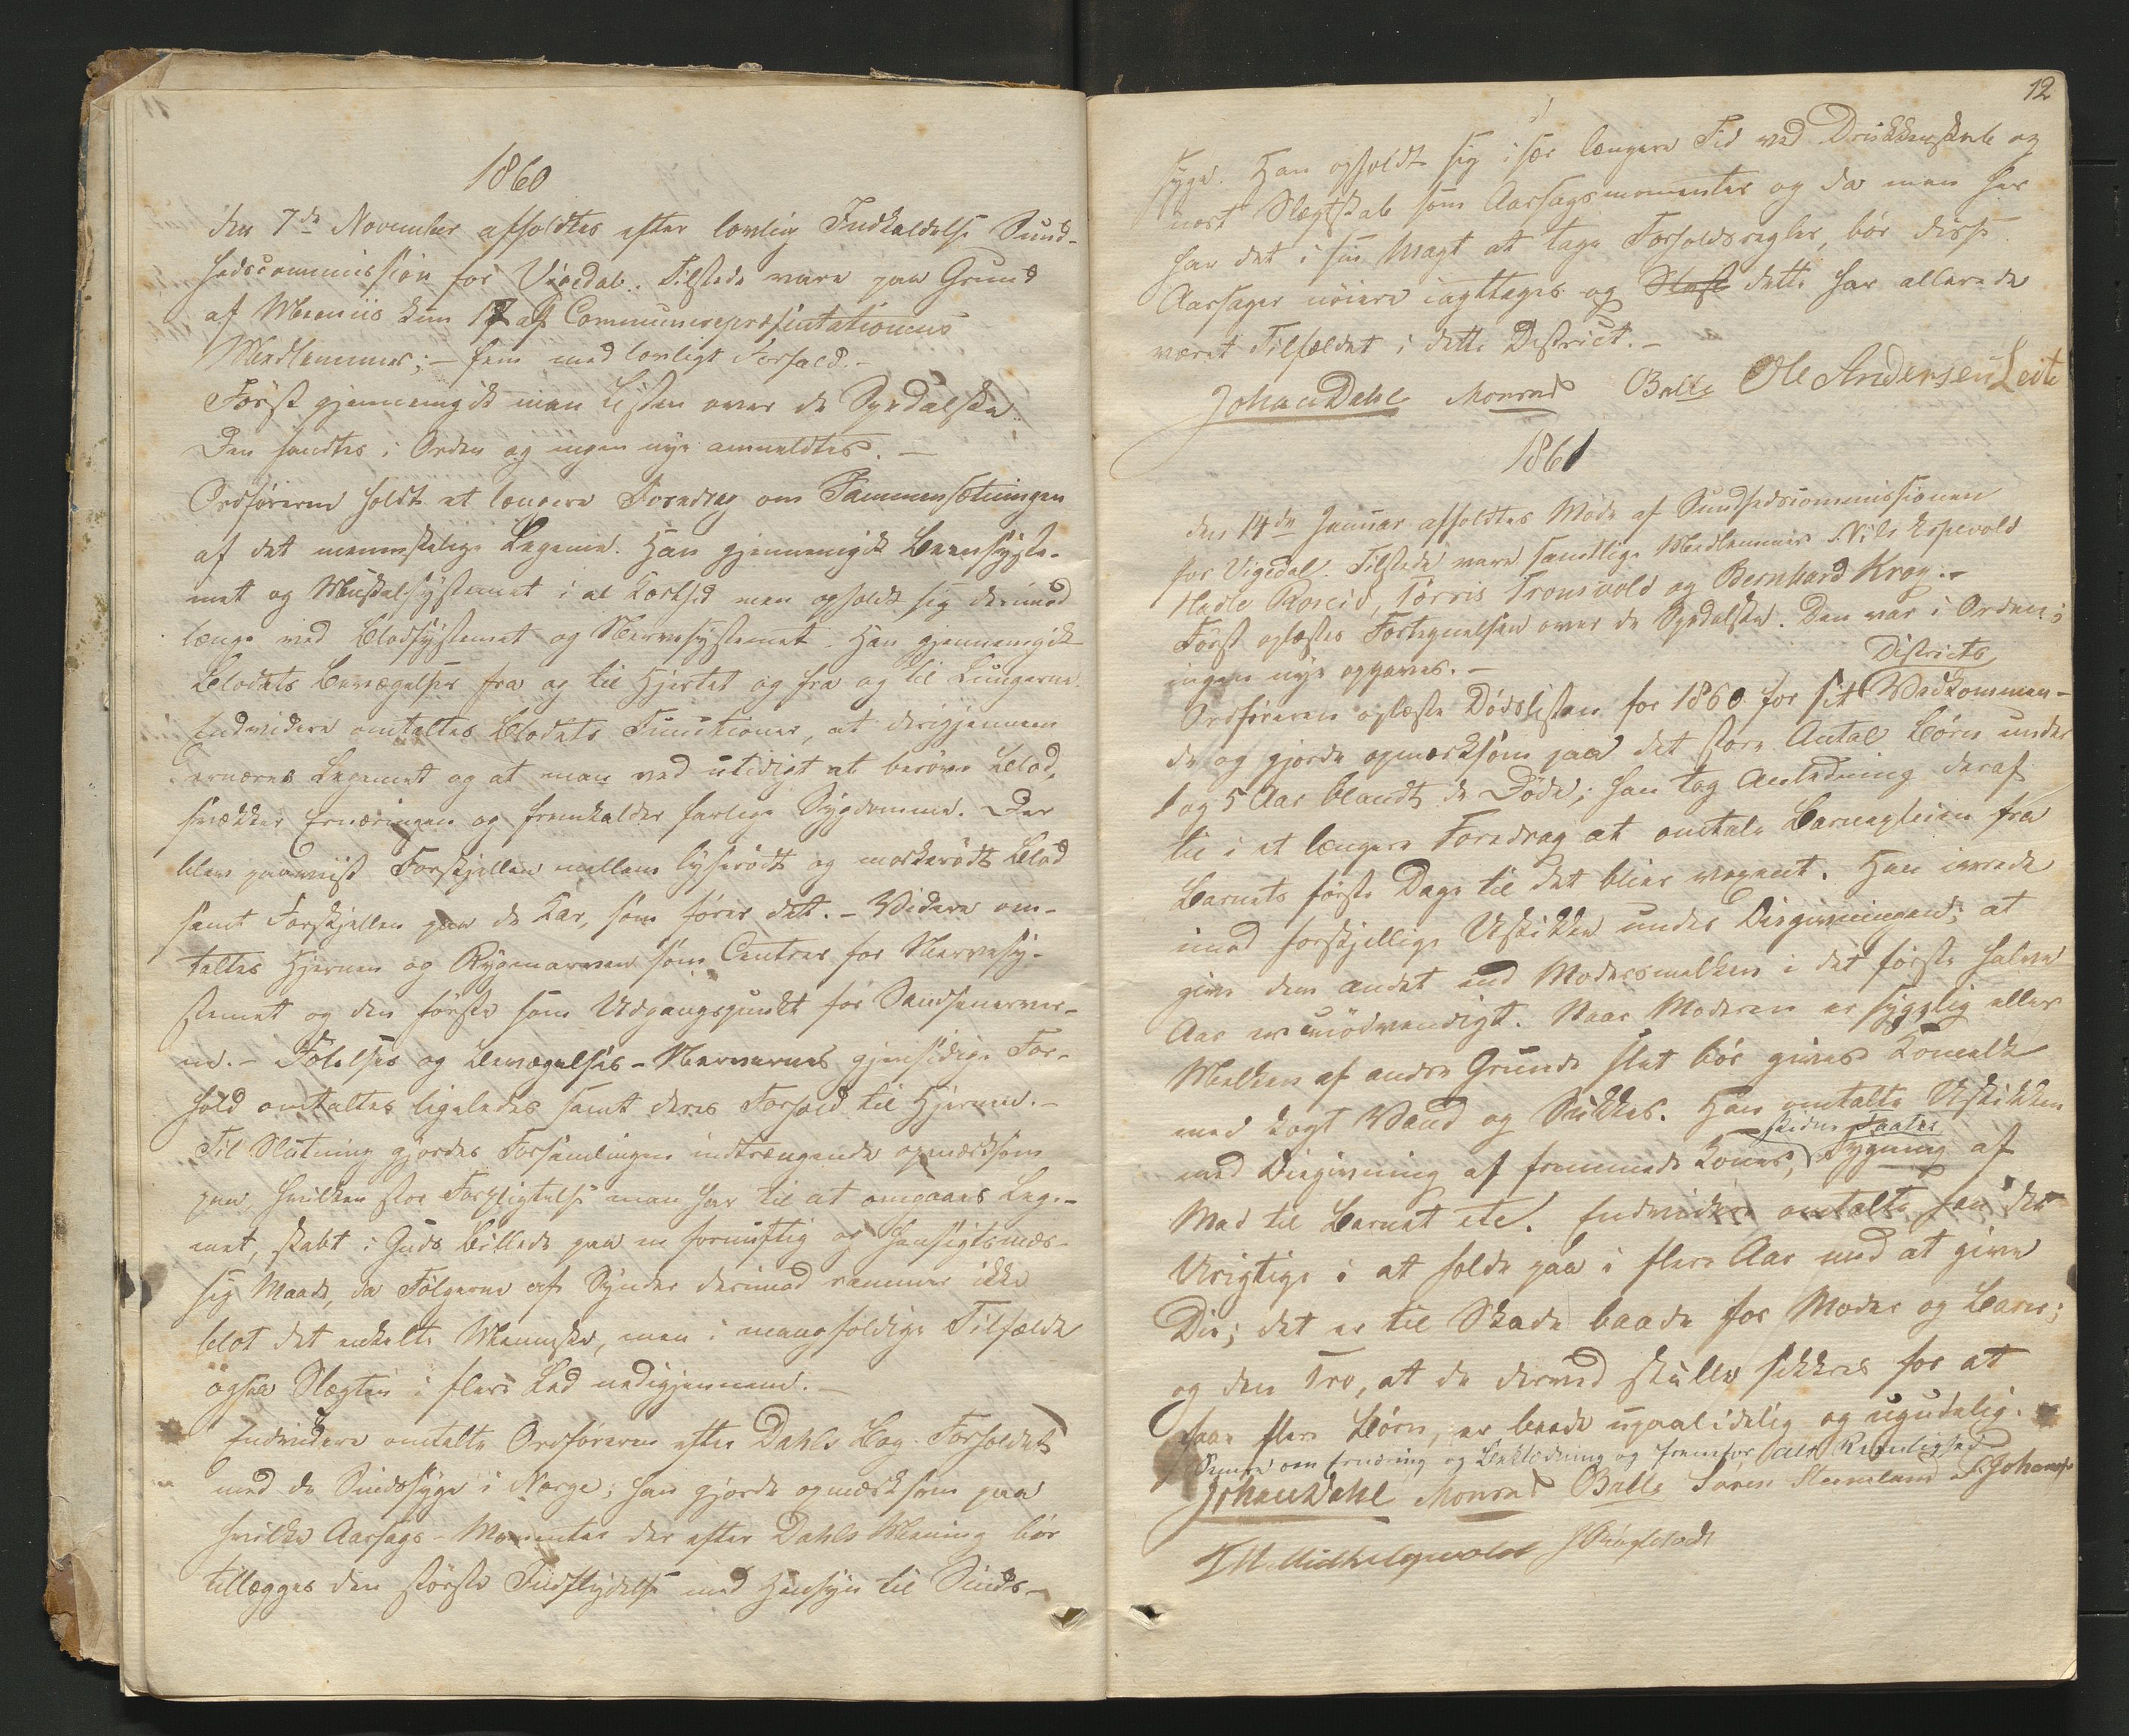 1860
den 7de November afholdtes efter lovlig Indkaldelse Sund-
hedscommission for Vigedal. Tilstede vare paa Grund
af kun 17 af Communerepræsentationens
Medlemmer; – fem med lovligt Forfald. –
Først gjennemgik man Listen over de Spedalske.
Den fandtes i Orden og ingen nye anmeldtes. –
Ordføreren holdt et længere Foredrag om Sammensætningen
af det menneskelige Legeme. Han gjennemgik Beensyste-
met og Muskelsystemet i al Korthed men opholdt sig derimod
længe ved Blodsystemet og Nervesystemet. Han gjennemgik
Blodets Bevægelser fra og til Hjertet og fra og til Lungerne.
Endvidere omtaltes Blodets Functioner, at derigjennem
ernæres Legemet og at man ved utidigt at berøve Blod,
svækker Ernæringen og fremkalder farlige Sygdomme. Der
blev paaviist Forskjellen mellem lyserødt og mørkerødt Blod
samt Forskjellen paa de Kar, som fører det. – Videre om-
taltes Hjernen og Rygmarven som Centrer for Nervesy-
stemet og den første som Udgangspunkt for Sandsenerver-
ne. – Følelses og Bevægelses-Nervernes gjensidige For-
hold omtaltes ligeledes samt deres Forhold til Hjernen. –
Til Slutning gjordes Forsamlingen indtrængende opmærksom
paa, hvilken stor Forpligtelse man har til at omgaaes Lege-
met, skabt i Guds Billede paa en fornuftig og hensigtsmæs-
sig Maade, da Følgerne af Synder derimod rammer ikke
blot det enkelte Menneske, men i mangfoldige Tilfælde
ogsaa Slægten i flere Led nedigjennem. –
Endvidere omtalte Ordføreren efter Dahls Bog Forholdet
med de Sindssyge i Norge; han gjorde opmærksom paa
hvilke Aarsags-Momenter der efter Dahls Mening bør
tillægges den største Indflydelse med Hensyn til Sinds-
12
syge. Han opholdt sig især længere Tid ved Drukkenskab og
nært Slægtskab som Aarsagsmomenter og da man her
har det i sin Magt at tage Forholdsregler, bør disse
Aarsager nøiere iagttages og dette har allerede
været Tilfældet i dette District. –
Johan Dahl Monrad Balle Ole Andersen Leite
1861
den 14de Januar afholdtes Møde af Sundhedscommissionen
for Vigedal. Tilstede vare samtlige Medlemmer Nils Espevold
Hadle Roseid, Tørris Tronsvold og Bernhard Krog. –
Først oplæstes Fortegnelsen over de Spedalske. Den var i Orden;
ingen nye opgaves. –
Districts
Ordføreren oplæste Dødslisten for 1860 for sit Vedkommen-
de og gjorde opmærksom paa det store Antal Børn under
1 og 5 Aar blandt de Døde; han tog Anledning deraf
til i et længere Foredrag at omtale Barnepleien fra
Barnets første Dage til det bliver vaxent. Han ivrede
imod forskjellige Uskikke under Diegivningen; at
give dem andet end Modersmelken i det første halve
Aar er unødvendigt. Naar Moderen er sygelig eller
Melken af andre Grunde slet bør gives Komelk
med kogt Vand og Sukker. Han omtalte Uskikken
Taater
med Diegivning af fremmede Koner, Tygning af
Mad til Barnet etc. Endvidere omtalte han det
Urigtige i at holde paa i flere Aar med at give
Die; det er til Skade baade for Moder og Barn;
og den Tro, at de derved skulle sikkres for at
faae flere Børn, er baade upaalidelig og ugudelig.
Senere om Ernæring og Beklædning og fremfor Alt Reenlighed
Johan Dahl Monrad Balle Søren Stemland S. Johans